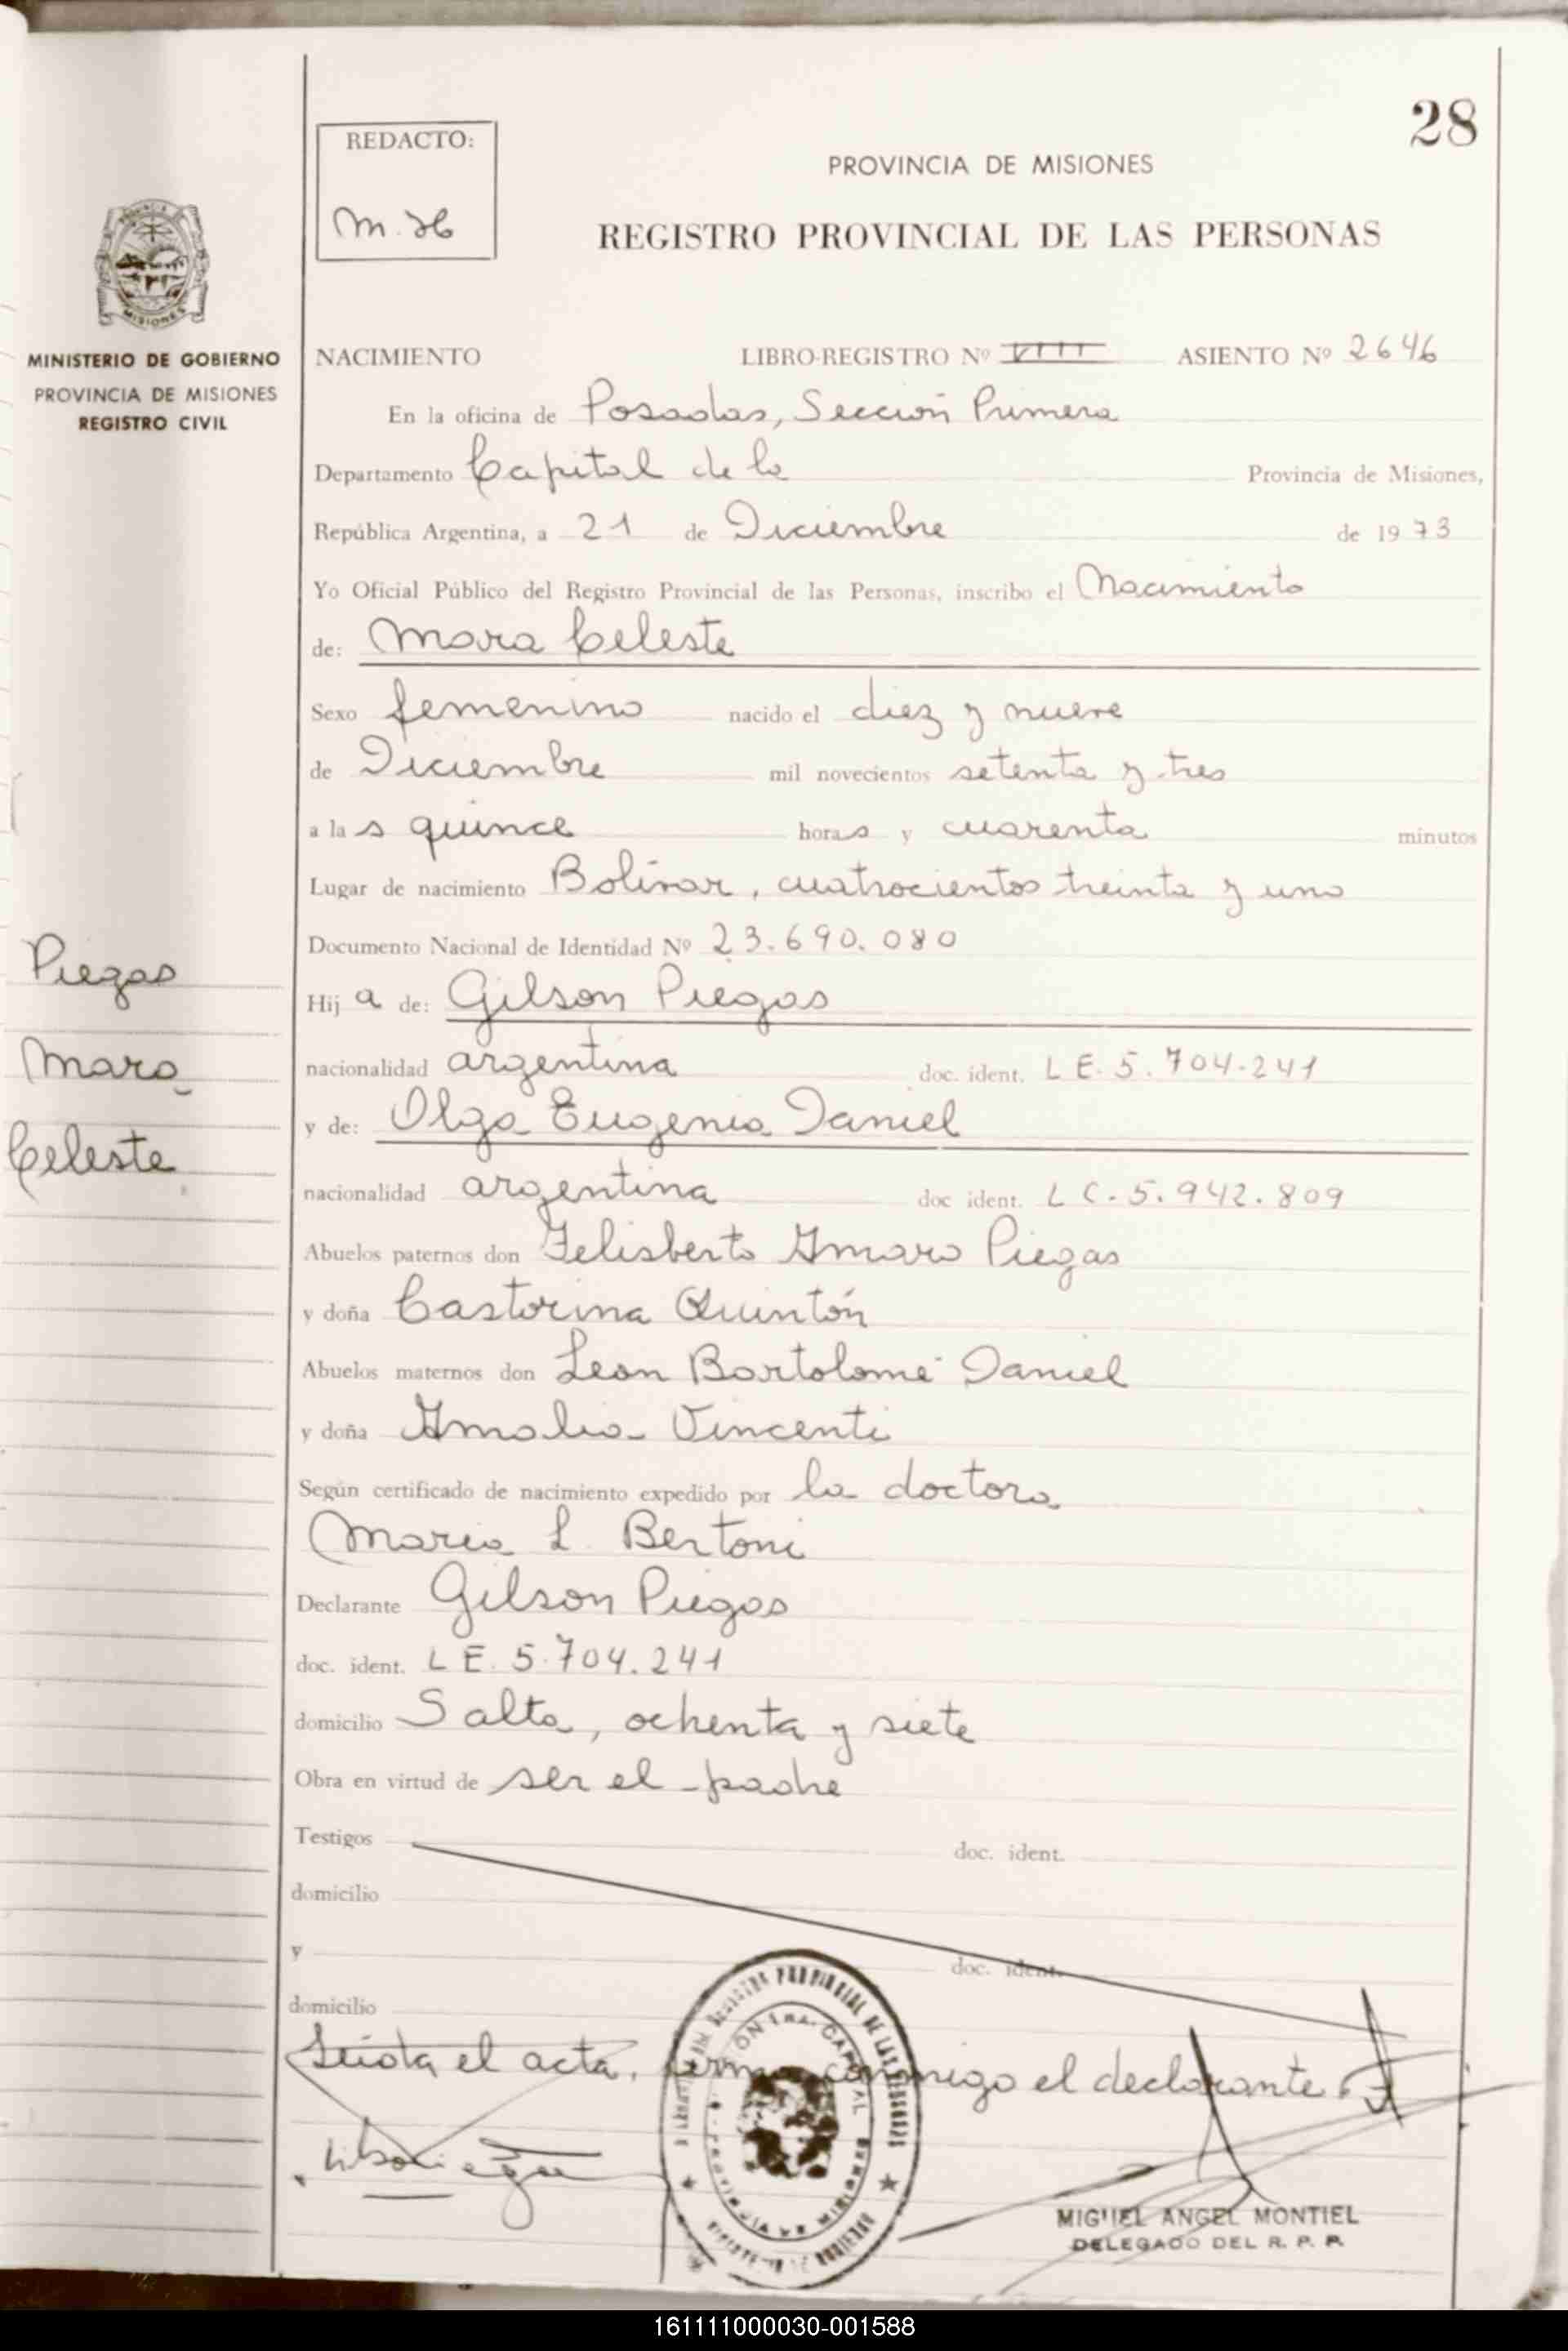 28
REDACTO:
M. H
PROVINCIA DE MISIONES
REGISTRO PROVINCIAL DE LAS PERSONAS
MISIONES
MINISTERIO DE GOBIERNO
PROVINCIA DE MISIONES
REGISTRO CIVIL
NACIMIENTO LIBRO-REGISTRO Nº VIII ASIENTO Nº 2646
En la oficina de Posadas, Sección Primera
Departamento Capital de la Provincia de Misiones,
República Argentina, a 21 de Diciembre de 1973
Yo Oficial Público del Registro Provincial de las Personas, inscribo el Nacimiento
de: Mara Celeste
Sexo femenino nacido el diez y nueve
de Diciembre mil novecientos setenta y tres
a las quince horas y cuarenta minutos
Lugar de nacimiento Bolívar, cuatrocientos treinta y uno
Documento Nacional de Identidad Nº 23.690.080
Piegas
Mara
Celeste
Hija de: Gilson Piegas
nacionalidad argentina doc. ident. LE. 5.704.241
y de: Olga Eugenia Daniel
nacionalidad argentina doc ident. LC. 5.942.809
Abuelos paternos don Felisberto Amaro Piegas
y doña Castorina Quintón
Abuelos maternos don León Bartolomé Daniel
y doña Amalia Vincenti
Según certificado de nacimiento expedido por la doctora
María L. Bertoni
Declarante Gilson Piegas
doc. ident. LE. 5.704.241
domicilio Salta, ochenta y siete
Obra en virtud de ser el padre
Testigos doc. ident.
domicilio
y doc. ident.
domicilio
Leída el acta, firma conmigo el declarante
MIGUEL ANGEL MONTIEL
DELEGADO DEL R. P. P.
161111000030-001588